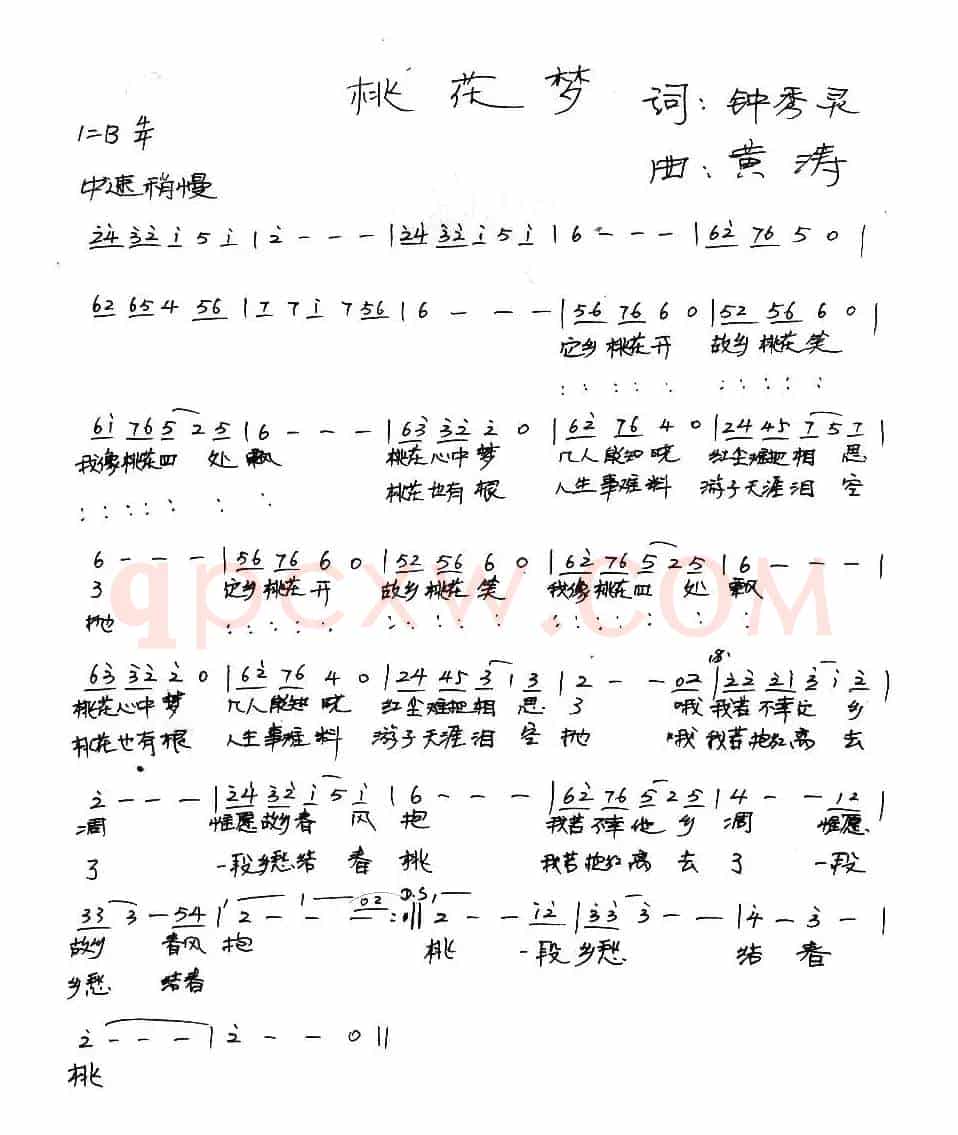 桃花梦
词:钟秀灵
1=B 4/4
曲:黄涛
中速稍慢
24 32 1 5 1 | 2 - - - | 24 32 1 5 1 | 6 - - - | 62 76 5 0 |
62 65 4 56 | 7 7 1 7 56 | 6 - - - | 56 76 6 0 | 52 56 6 0 |
它乡桃花开 故乡桃花笑
61 76 5 2 5 | 6 - - - | 63 32 2 0 | 62 76 4 0 | 24 45 7 5 7 |
我像桃花四 处飘 桃花心中梦 几人能知晓 红尘难把相 思
桃花也有根 人生事难料 游子天涯泪 空
6 - - - | 56 76 6 0 | 52 56 6 0 | 62 76 5 2 5 | 6 - - - |
了 它乡桃花开 故乡桃花笑 我像桃花四 处 飘
抛
qpcxw.com
63 32 2 0 | 62 76 4 0 | 24 45 3 1 3 | 2 - - 02 | 22 21 3 1 2 |
桃花心中梦 几人能知晓 红尘难把相 思 了 哦 我若不幸他 乡
桃花也有根 人生事难料 游子天涯泪 空 抛 哦 我若抱红离 去
2 - - - | 24 32 1 5 1 | 6 - - - | 62 76 5 2 5 | 4 - - 12 |
凋 惟愿故乡春 风 抱 我若不幸他 乡 凋 惟愿
了 一段乡愁结 春 桃 我若抱红离 去 了 一段
33 3 - 54 | 2 - - 02 :|| D.S. 2 - - 12 | 33 3 - - | 4 - 3 - |
故乡 春风 抱 桃 一段 乡愁 结 春
乡愁 结春
2 - - - | 2 - - 0 ||
桃